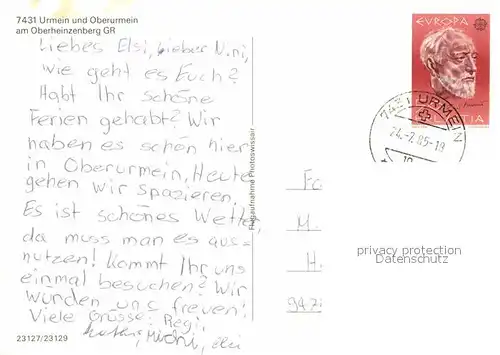 7431 Urmein und Oberurmein
am Oberheinzenberg GR
Liebes Elsi, lieber Nini,
wie geht es Euch?
Habt Ihr schöne
Ferien gehabt? Wir
haben es schön hier
in Oberurmein, Heute
gehen wir spazieren.
Es ist schönes Wetter,
da muss man es aus-
nutzen! Kommt Ihr uns
einmal besuchen? Wir
würden uns freuen!
Viele Grüsse: Regi,
23127/23129
Flugaufnahme Photoswissair
EUROPA
HELVETIA
7431 URMEIN
24.-7.85-19
Fa
M.
H.
947
privacy protection
Datenschutz